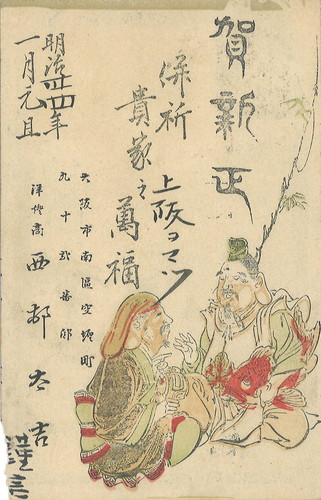 賀新正
併祈
貴家之萬福
上阪
大阪市南區空堀町
九十貮番邸
西邨太吉
明治四年
一月元旦
謹言